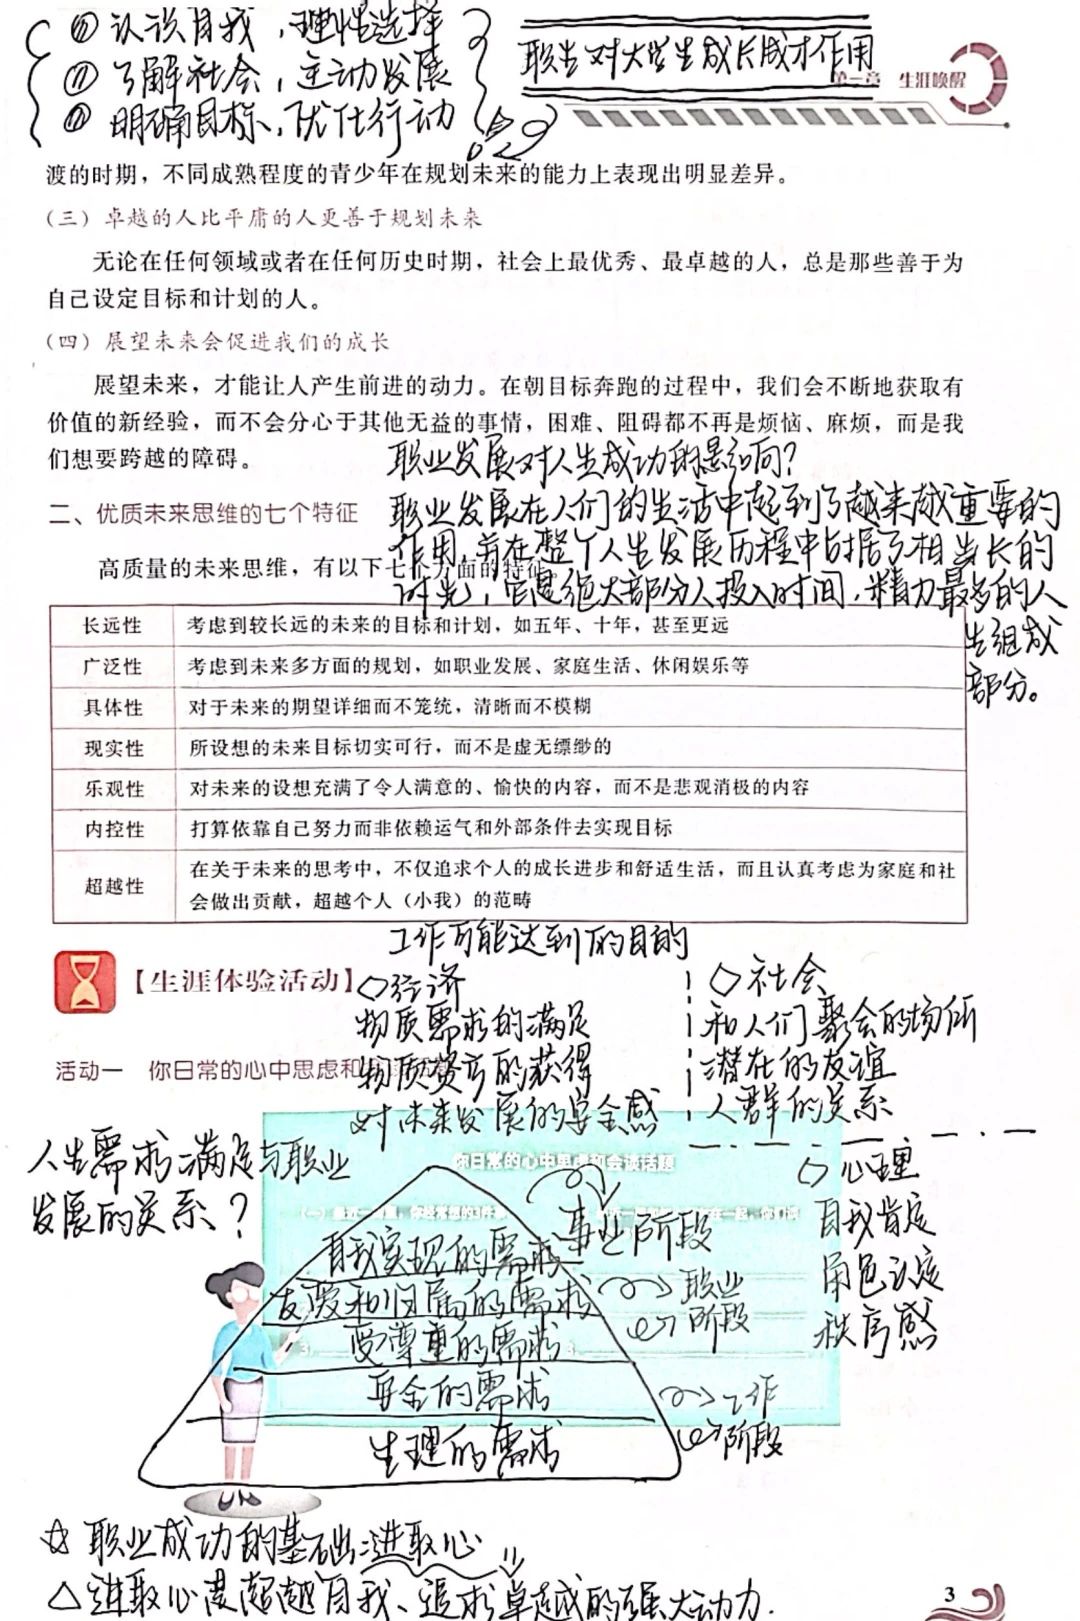 ① 认识自我，理性选择
① 了解社会，主动发展
① 明确目标，优化行动
职生对大学生成长成才作用
第一章 生涯唤醒
渡的时期，不同成熟程度的青少年在规划未来的能力上表现出明显差异。
（三）卓越的人比平庸的人更善于规划未来
无论在任何领域或者在任何历史时期，社会上最优秀、最卓越的人，总是那些善于为
自己设定目标和计划的人。
（四）展望未来会促进我们的成长
展望未来，才能让人产生前进的动力。在朝目标奔跑的过程中，我们会不断地获取有
价值的新经验，而不会分心于其他无益的事情，困难、阻碍都不再是烦恼、麻烦，而是我
们想要跨越的障碍。
职业发展对人生成功的影响？
二、优质未来思维的七个特征
职业发展在人们的生活中起到了越来越重要的
作用，并在整个人生发展历程中占据了相当长的
高质量的未来思维，有以下七个方面的特征。
时光，它是绝大部分人投入时间，精力最多的人
生组成
部分。
长远性 考虑到较长远的未来的目标和计划，如五年、十年，甚至更远
广泛性 考虑到未来多方面的规划，如职业发展、家庭生活、休闲娱乐等
具体性 对于未来的期望详细而不笼统，清晰而不模糊
现实性 所设想的未来目标切实可行，而不是虚无缥缈的
乐观性 对未来的设想充满了令人满意的、愉快的内容，而不是悲观消极的内容
内控性 打算依靠自己努力而非依赖运气和外部条件去实现目标
超越性 在关于未来的思考中，不仅追求个人的成长进步和舒适生活，而且认真考虑为家庭和社
会做出贡献，超越个人（小我）的范畴
工作可能达到的目的
【生涯体验活动】
◇经济
物质需求的满足
物质资产的获得
对未来发展的安全感
◇社会
和人们聚会的场所
潜在的友谊
人群的关系
活动一 你日常的心中思虑和
人生需求满足与职业
发展的关系？
你日常的心中思虑和会谈话题
◇心理
自我肯定
角色认定
秩序感
自我实现的需求
事业阶段
友爱和归属的需求
受尊重的需求
职业
阶段
安全的需求
生理的需求
工作
阶段
☆ 职业成功的基础:进取心
△进取心是超越自我、追求卓越的强大动力.
3